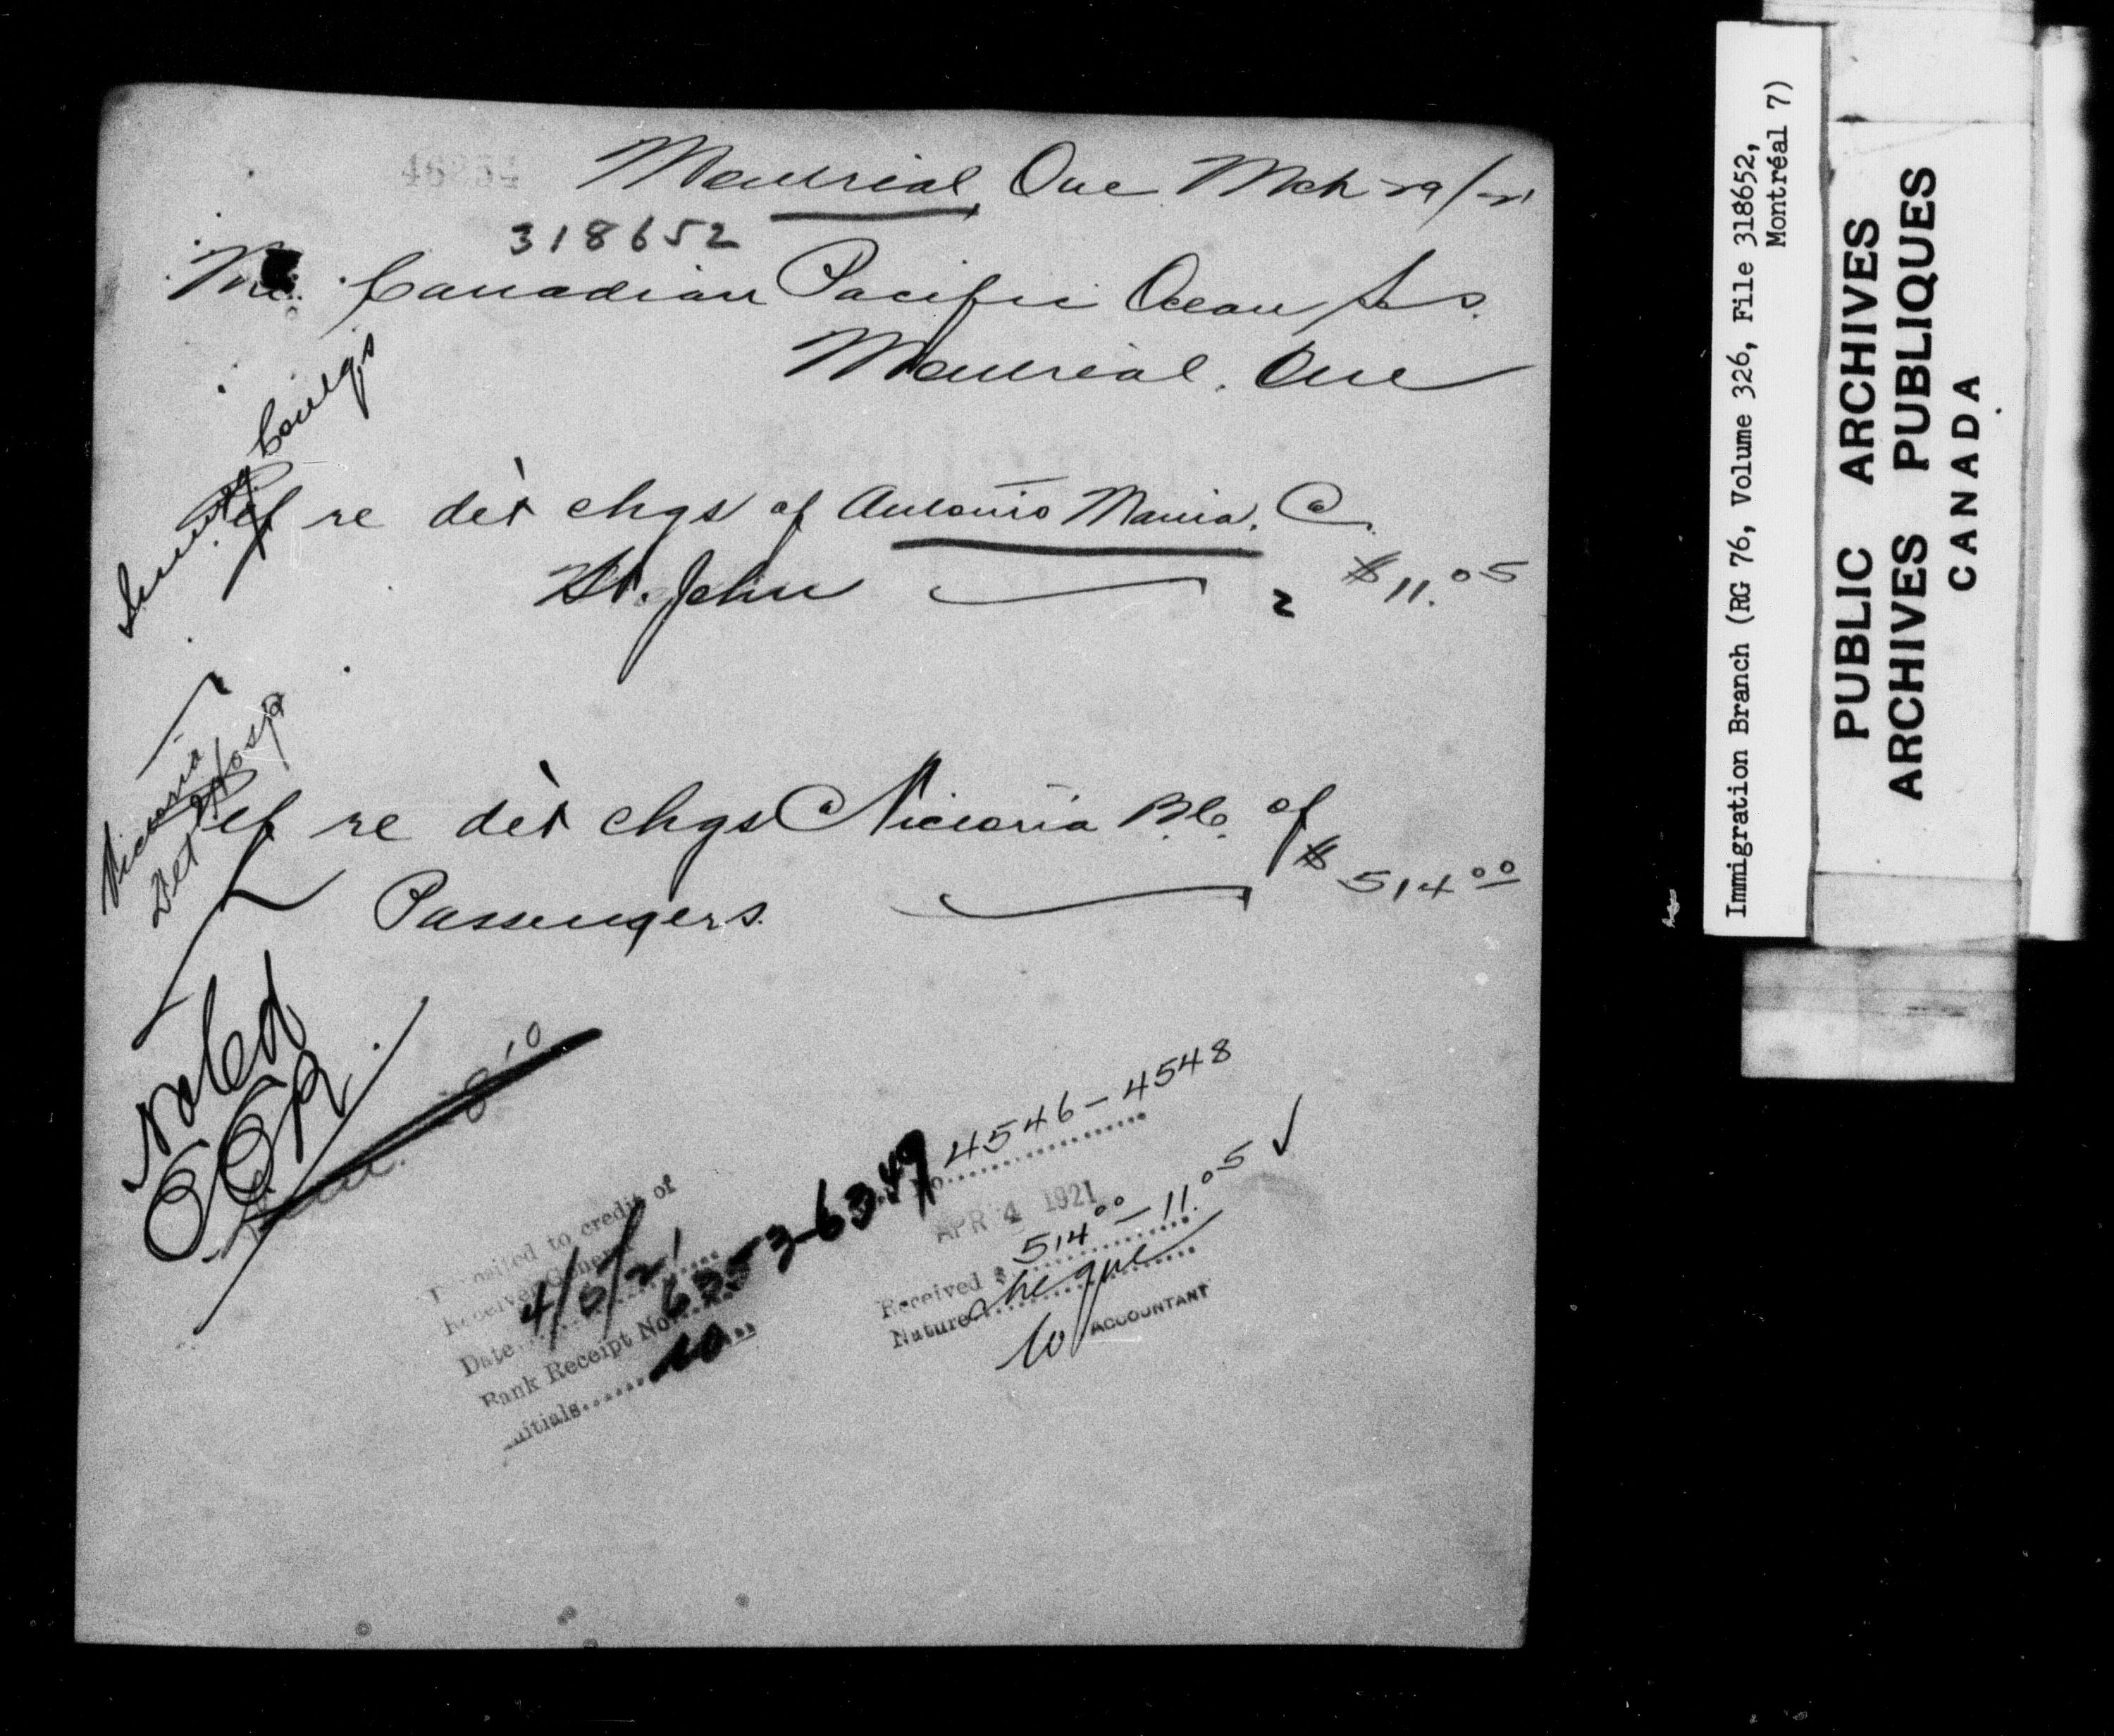 46234
Montreal, Que Mch 29/21
318652
The Canadian Pacific Ocean Ss.
Montreal. Que
Sundry Coll'gs
Ref re det chgs of Antonio Mania. @
St. John $11.05
2
Victoria
Det Hosp
Ref re det chgs @ Victoria B.C. of
Passengers. $514.00
Noted
4546-4548
APR 4 1921
Received $ 514.00 - 11.05 ✓
Nature cheque
ACCOUNTANT
Deposited to credit of
Receiver General
Date 4/5/21
Bank Receipt No. 6353-6349
Initials
Immigration Branch (RG 76, Volume 326, File 318652,
Montréal 7)
PUBLIC ARCHIVES
ARCHIVES PUBLIQUES
CANADA